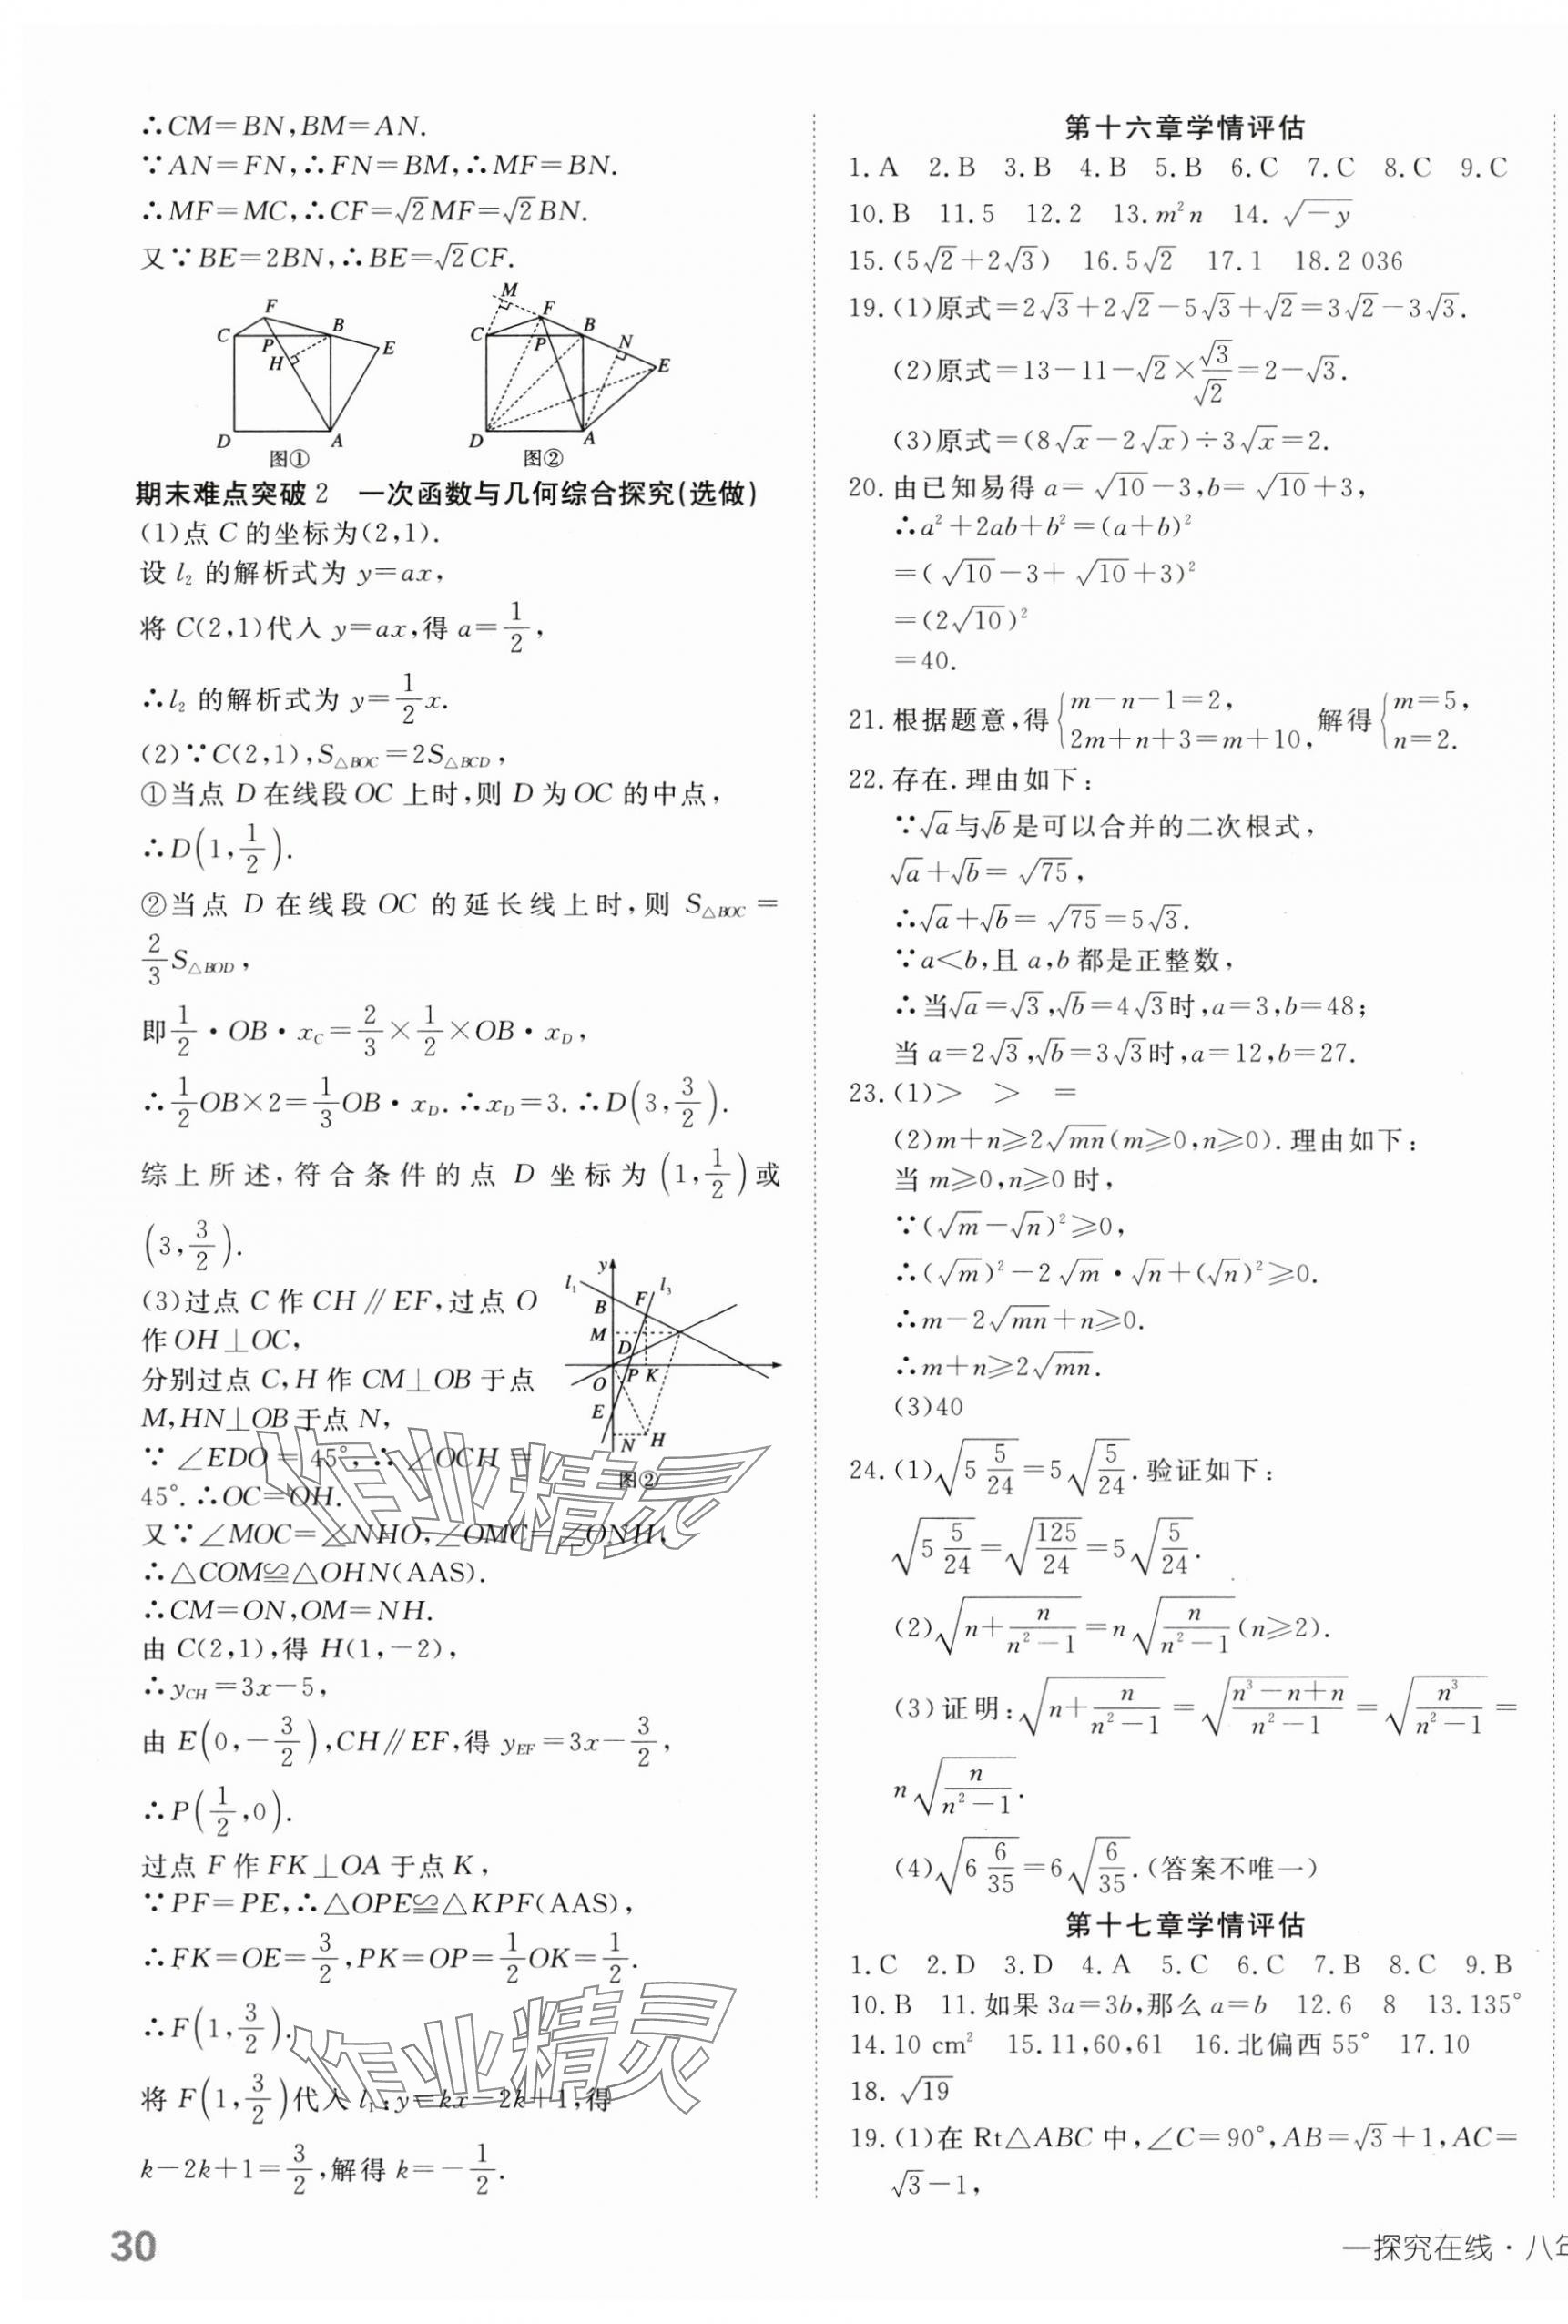 ∴CM=BN,BM=AN.
∵AN=FN,∴FN=BM,∴MF=BN.
∴MF=MC,∴CF=√2MF=√2BN.
又∵BE=2BN,∴BE=√2CF.
F
C
B
P
H
E
D
A
图①
M
F
C
B
P
N
E
D
A
图②
期末难点突破2 一次函数与几何综合探究(选做)
(1)点C的坐标为(2,1).
设l₂的解析式为y=ax,
将C(2,1)代入y=ax,得a=1/2,
∴l₂的解析式为y=1/2x.
(2)∵C(2,1),S△BOC=2S△BCD,
①当点D在线段OC上时,则D为OC的中点,
∴D(1,1/2).
②当点D在线段OC的延长线上时,则S△BOC=
2/3S△BOD,
即1/2·OB·x_C=2/3×1/2×OB·x_D,
∴1/2OB×2=1/3OB·x_D.∴x_D=3.∴D(3,3/2).
综上所述,符合条件的点D坐标为(1,1/2)或
(3,3/2).
(3)过点C作CH∥EF,过点O
作OH⊥OC,
分别过点C,H作CM⊥OB于点
M,HN⊥OB于点N,
∵∠EDO=45°,∴∠OCH=
45°.∴OC=OH.
y
l₁
l₃
B
F
M
D
O
P
K
E
N
H
图②
又∵∠MOC=∠NHO,∠OMC=∠ONH,
∴△COM≌△OHN(AAS).
∴CM=ON,OM=NH.
由C(2,1),得H(1,-2),
∴y_CH=3x-5,
由E(0,-3/2),CH∥EF,得y_EF=3x-3/2,
∴P(1/2,0).
过点F作FK⊥OA于点K,
∵PF=PE,∴△OPE≌△KPF(AAS),
∴FK=OE=3/2,PK=OP=1/2OK=1/2.
∴F(1,3/2).
将F(1,3/2)代入l₁:y=kx-2k+1,得
k-2k+1=3/2,解得k=-1/2.
作业精灵
作业精灵
30
第十六章学情评估
1.A 2.B 3.B 4.B 5.B 6.C 7.C 8.C 9.C
10.B 11.5 12.2 13.m²n 14.√(-y)
15.(5√2+2√3) 16.5√2 17.1 18.2 036
19.(1)原式=2√3+2√2-5√3+√2=3√2-3√3.
(2)原式=13-11-√2×√3/√2=2-√3.
(3)原式=(8√x-2√x)÷3√x=2.
20.由已知易得a=√10-3,b=√10+3,
∴a²+2ab+b²=(a+b)²
=(√10-3+√10+3)²
=(2√10)²
=40.
21.根据题意,得{m-n-1=2, 2m+n+3=m+10,解得{m=5, n=2.
22.存在.理由如下:
∵√a与√b是可以合并的二次根式,
√a+√b=√75,
∴√a+√b=√75=5√3.
∵a<b,且a,b都是正整数,
∴当√a=√3,√b=4√3时,a=3,b=48;
当a=2√3,√b=3√3时,a=12,b=27.
23.(1)> > =
(2)m+n≥2√(mn)(m≥0,n≥0).理由如下:
当m≥0,n≥0时,
∵(√m-√n)²≥0,
∴(√m)²-2√m·√n+(√n)²≥0.
∴m-2√(mn)+n≥0.
∴m+n≥2√(mn).
(3)40
24.(1)√(5 5/24)=5√(5/24).验证如下:
√(5 5/24)=√(125/24)=5√(5/24).
(2)√(n+n/(n²-1))=n√(n/(n²-1))(n≥2).
(3)证明:√(n+n/(n²-1))=√((n³-n+n)/(n²-1))=√(n³/(n²-1))=
n√(n/(n²-1)).
(4)√(6 6/35)=6√(6/35).(答案不唯一)
第十七章学情评估
1.C 2.D 3.D 4.A 5.C 6.C 7.B 8.C 9.B
10.B 11.如果3a=3b,那么a=b 12.6 8 13.135°
14.10 cm² 15.11,60,61 16.北偏西55° 17.10
18.√19
19.(1)在Rt△ABC中,∠C=90°,AB=√3+1,AC=
√3-1,
一探究在线·八年